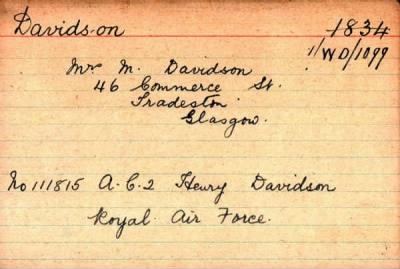 Davidson
1834
1/WD/1099
Mrs M. Davidson
46 Commerce St.
Tradeston
Glasgow.
No 111815 A.C.2 Henry Davidson
Royal Air Force.